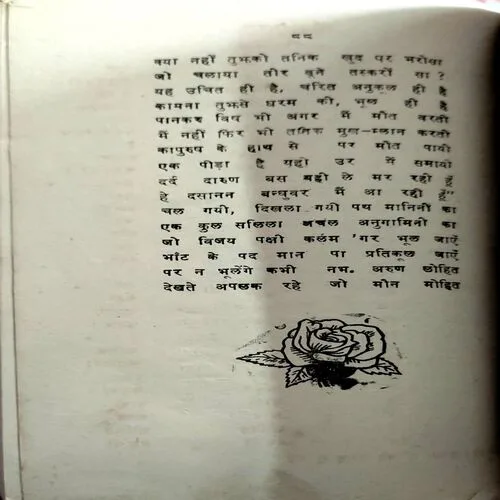 ८८
क्या नहीं तुझको तनिक खुद पर भरोसा
जो चलाया तीर तूने तस्करों सा ?
यह उचित ही है, चरित अनुकूल ही है
कामना तुझसे धरम की, भूल ही है
पानकर विष भी अगर मैं मौत वरती
मैं नहीं फिर भी तनिक मुख-म्लान करती
कापुरुष के हाथ से पर मौत पायी
एक पीड़ा है यही उर में समायी
दर्द दारुण बस यही ले मर रही हूँ
हे दसानन बन्धुवर मैं आ रही हूँ"
चल गयी, दिखला गयी पथ मानिनी का
एक कुल सलिला अचल अनुगामिनी का
जो विजय पक्षी कलम 'गर भूल जाएँ
भाँट के पद मान पा प्रतिकूल जाएँ
पर न भूलेंगे कभी नभ. अरुण लोहित
देखते अपलक रहे जो मौन मोहित